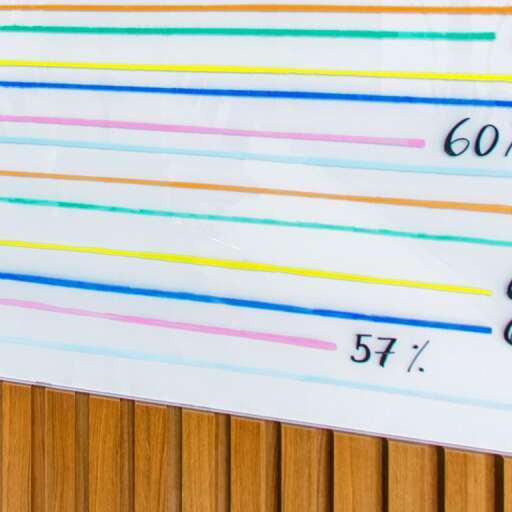 60%
57%